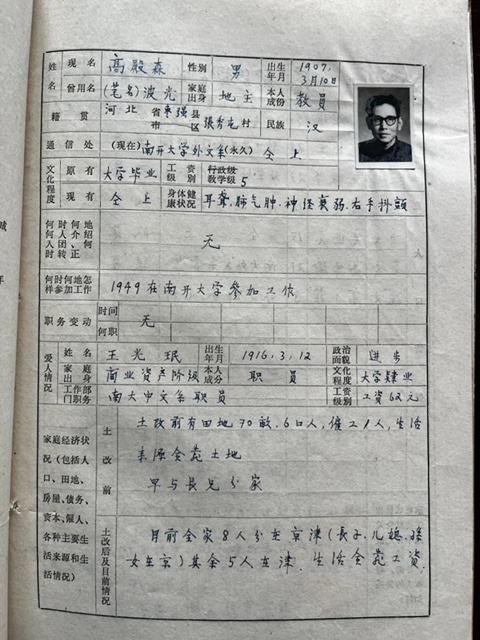 姓名 现名 高殿森 性别 男 出生年月 1907.3月10日
曾用名 (笔名)波光 家庭出身 地主 本人成份 教员
籍贯 河北省市枣强县区张秀屯村 民族 汉
通信处 (现在)南开大学外文系(永久)仝上
文化程度 原有 大学毕业 工资级别 行政级 教学级5
现有 仝上 身体健康状况 耳聋.肺气肿.神经衰弱.右手抖颤
何时何地何人介绍入团、何时转正 无
何时何地怎样参加工作 1949在南开大学参加工作
职务变动 时间 无
何职
爱人情况 姓名 王光珉 出生年月 1916,3,12 政治面貌 进步
家庭出身 商业资产阶级 本人成分 职员 文化程度 大学肄业
工作部门职务 南大中文系职员 工资级别 工资62元
家庭经济状况(包括人口、田地、房屋、债务、资本、雇人、各种主要生活来源和生活情况)
土改前 土改前有田地70亩.6口人,雇工1人,生活
来源全靠土地
早与长兄分家
土改后及目前情况 目前全家8人分在京津(長子.儿媳.孫
女在京)其余5人在津.生活全靠工資.